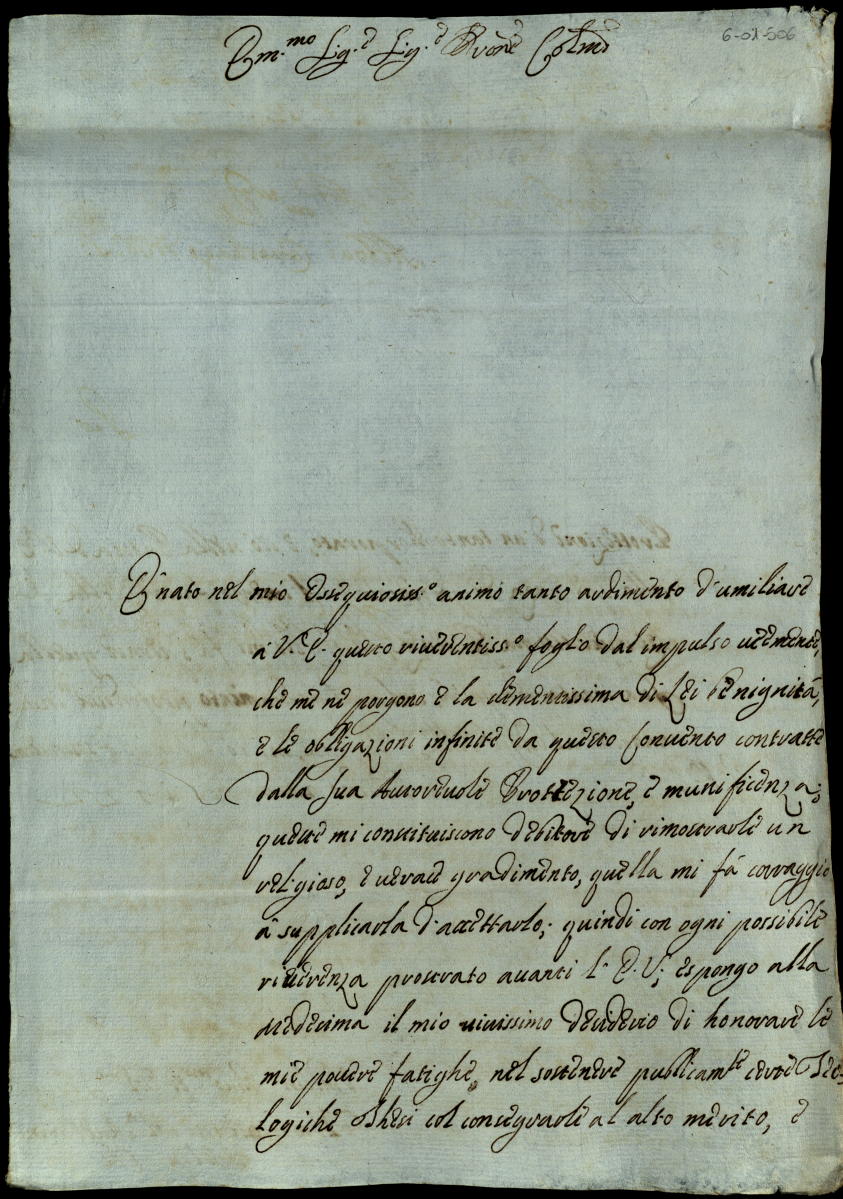 6-01-506
Em.mo Sig.e Sig.e Prōne Colmō
È nato nel mio essequiosiss.o animo tanto ardimento d'umiliare
à V.E. questo riverentiss.o foglio dal impulso veemente,
che me ne porgono e la clementissima di Lei benignità,
e le obligazioni infinite da questo Convento contratte
dalla sua Autorevole Protezione, e munificenza;
queste mi constituiscono debitore di rimostrarle un
religioso, e verace gradimento, quella mi fà corraggio
à supplicarla d'accettarlo; quindi con ogni possibile
riverenza prostrato avanti l'E.V; espongo alla
medesima il mio vivissimo desiderio di honorare le
mie povere fatighe, nel sostenere publicam.te certe Teo-
logiche Thesi col consegrarle al alto merito, e